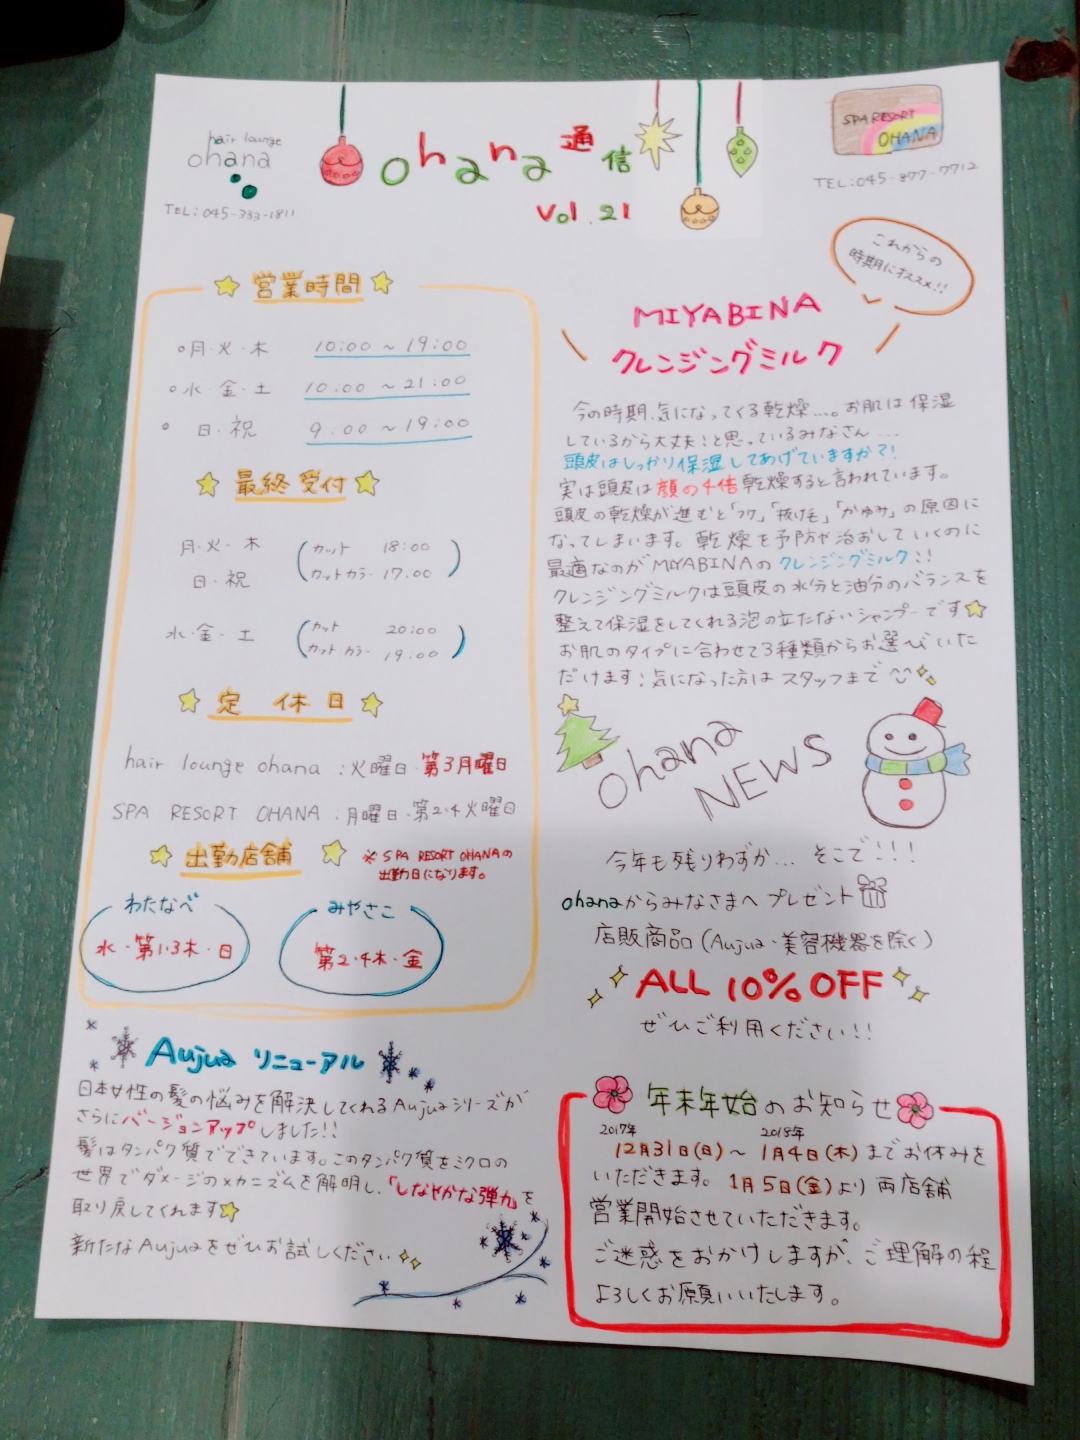 hair lounge
ohana
TEL:045-333-1811
ohana通信
Vol.21
SPA RESORT
OHANA
TEL:045-877-7712
営業時間
月・火・木 10:00~19:00
水・金・土 10:00~21:00
日・祝 9:00~19:00
最終受付
月・火・木
日・祝
(カット 18:00
カットカラー 17:00)
水・金・土
(カット 20:00
カットカラー 19:00)
定休日
hair lounge ohana:火曜日・第3月曜日
SPA RESORT OHANA:月曜日・第2・4火曜日
出勤店舗
※SPA RESORT OHANAの
出勤日になります。
わたなべ
水・第1・3木・日
みやさこ
第2・4木・金
Aujua リニューアル
日本女性の髪の悩みを解決してくれるAujuaシリーズが
さらにバージョンアップしました!!
髪はタンパク質でできています。このタンパク質をミクロの
世界でダメージのメカニズムを解明し、「しなやかな弾力」を
取り戻してくれます
新たなAujuaをぜひお試しください
これからの
時期にオススメ!!
MIYABINA
クレンジングミルク
今の時期、気になってくる乾燥…。お肌は保湿
しているから大丈夫!と思っているみなさん…
頭皮はしっかり保湿してあげていますか?!
実は頭皮は顔の4倍乾燥すると言われています。
頭皮の乾燥が進むと「フケ」「抜け毛」「かゆみ」の原因に
なってしまいます。乾燥を予防や治おしていくのに
最適なのがMIYABINAのクレンジングミルク!!
クレンジングミルクは頭皮の水分と油分のバランスを
整えて保湿をしてくれる泡の立たないシャンプーです
お肌のタイプに合わせて3種類からお選びいた
だけます!気になった方はスタッフまで
ohana
NEWS
今年も残りわずか… そこで!!!
ohanaからみなさまへプレゼント
店販商品(Aujua・美容機器を除く)
ALL 10% OFF
ぜひご利用ください!!
年末年始のお知らせ
2017年 2018年
12月31日(日)~1月4日(木)までお休みを
いただきます。1月5日(金)より両店舗
営業開始させていただきます。
ご迷惑をおかけしますが、ご理解の程
よろしくお願いいたします。